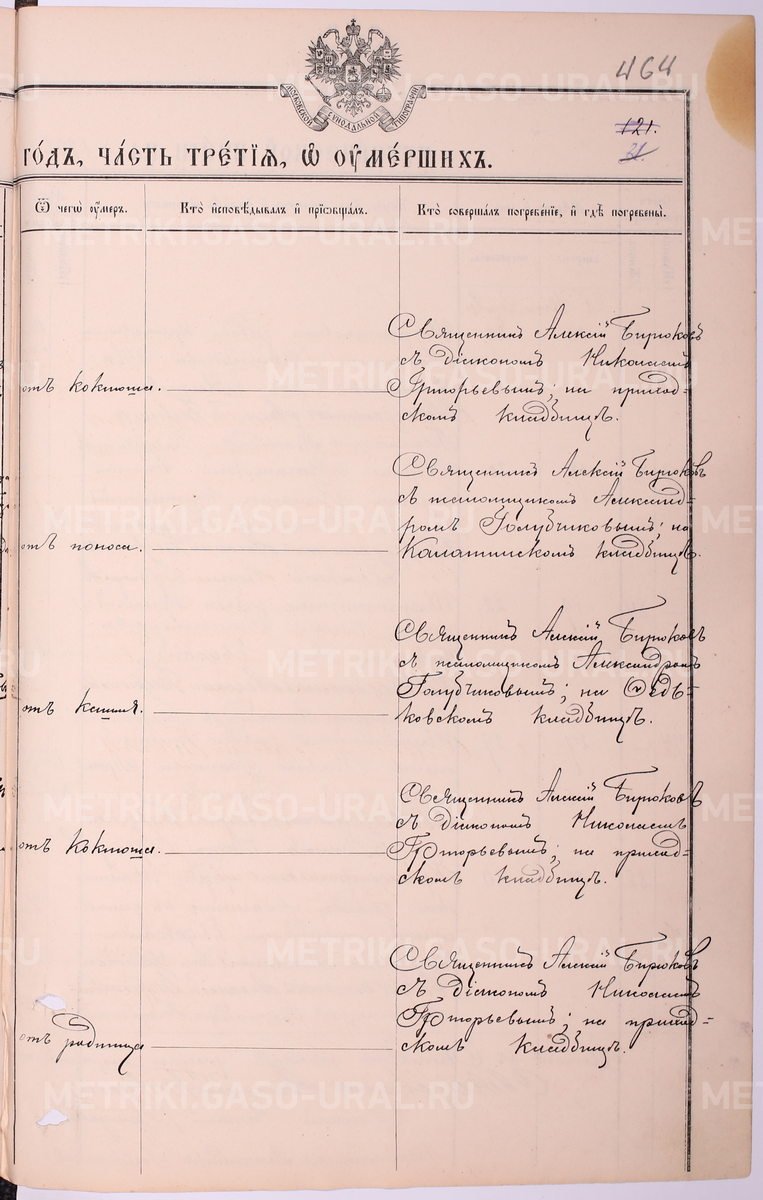 464
121.
31
МОСКОВСКОЙ СУНОДАЛЬНОЙ ТИПОГРАФІИ
го́дъ, ча́сть тре́тїѧ, ѡ҆ ᲂу҆ме́ршихъ.
Ѿ чегѡ̀ ᲂу҆́меръ.
Кто̀ и҆сповѣ́дывалъ и҆ прїѡбща́лъ.
Кто̀ соверша́лъ погребе́нїе, и҆ гдѣ̀ погребены̀.
отъ коклюша.
Священникъ Алексій Бирюковъ
съ діакономъ Николаемъ
Григорьевымъ; на приход-
скомъ кладбищѣ.
отъ поноса.
Священникъ Алексій Бирюковъ
съ псаломщикомъ Александ-
ромъ Голубчиковымъ; на
Калатинскомъ кладбищѣ.
отъ кашля.
Священникъ Алексій Бирюковъ
съ псаломщикомъ Александромъ
Голубчиковымъ; на Ѳедь-
ковскомъ кладбищѣ.
отъ Коклюша.
Священникъ Алексій Бирюковъ
съ діакономъ Николаемъ
Григорьевымъ; на приход-
скомъ кладбищѣ.
отъ родимца
Священникъ Алексій Бирюковъ
съ діакономъ Николаемъ
Григорьевымъ; на приход=
скомъ кладбищѣ.
METRIKI.GASO-URAL.RU